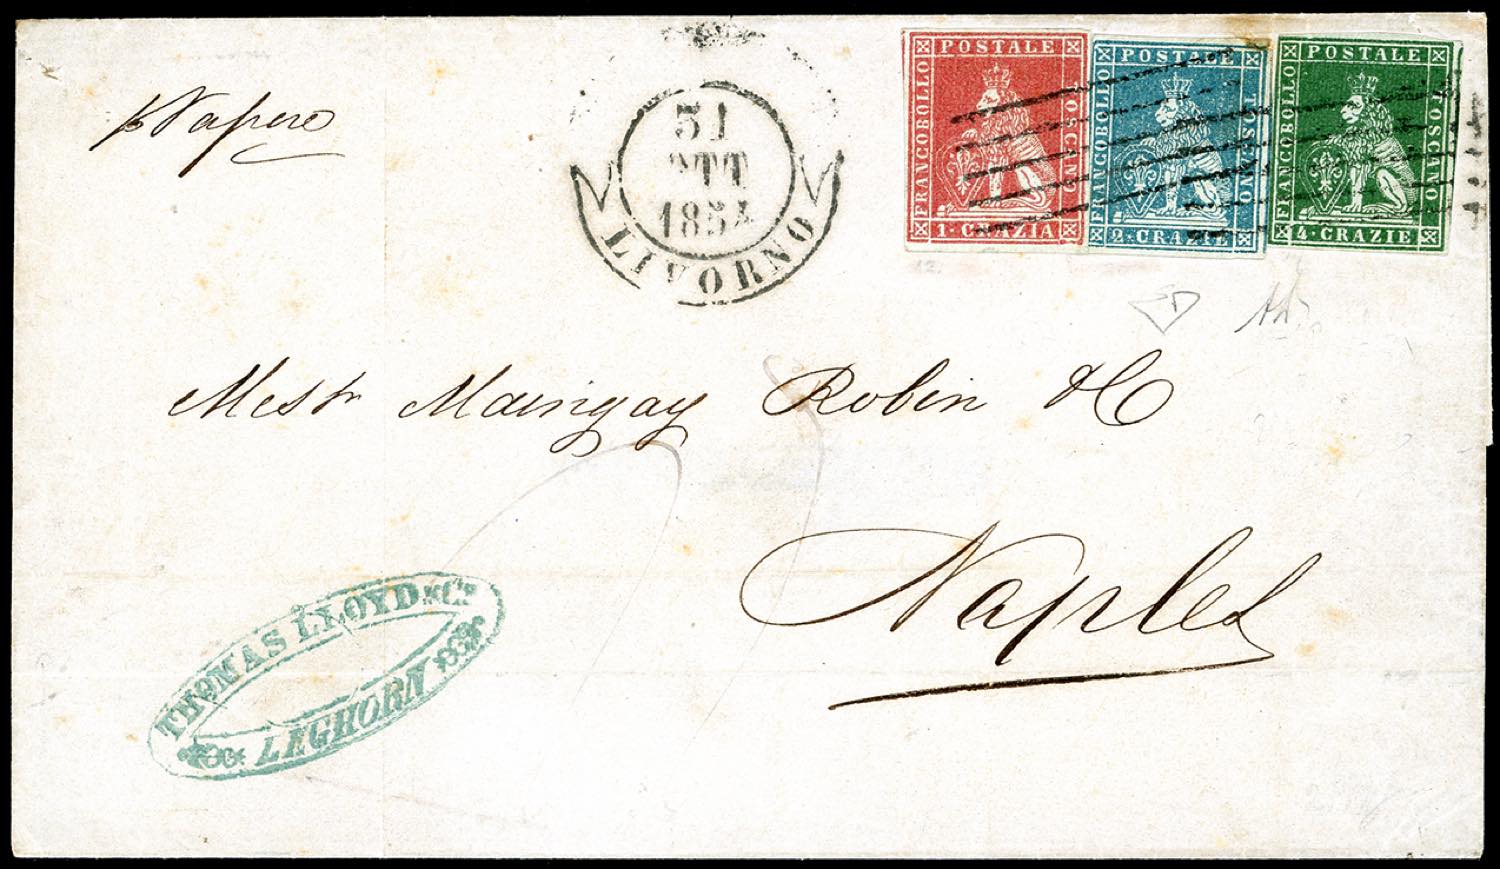 p Vapore
31
OTT
1854
LIVORNO
FRANCOBOLLO POSTALE TOSCANO
1 · CRAZIA
FRANCOBOLLO POSTALE TOSCANO
2 · CRAZIE
FRANCOBOLLO POSTALE TOSCANO
4 · CRAZIE
12.
Messrs Maingay Robin & C
Naples
THOMAS LLOYD & Co
LEGHORN